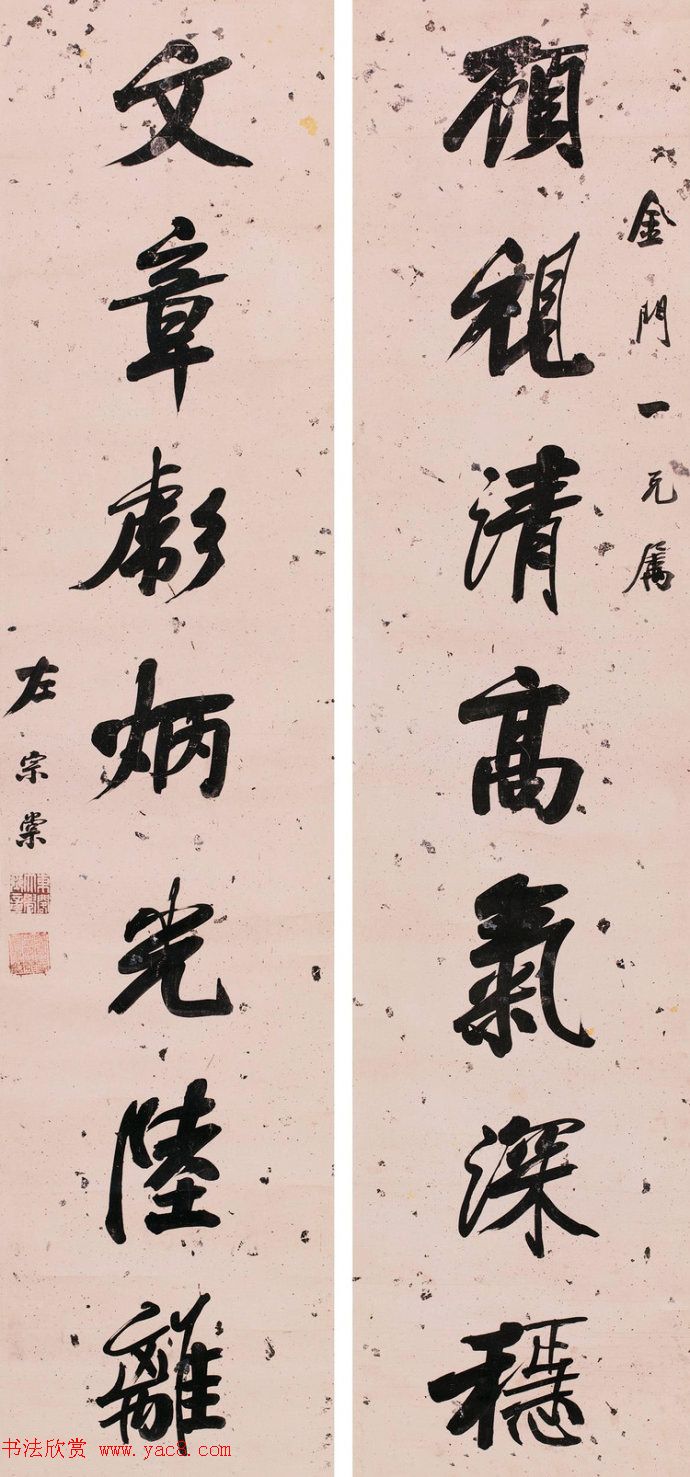 金門一元属
顧視清高氣深穩
文章彪炳光陸離
左宗棠
书法欣赏 www.yac8.com